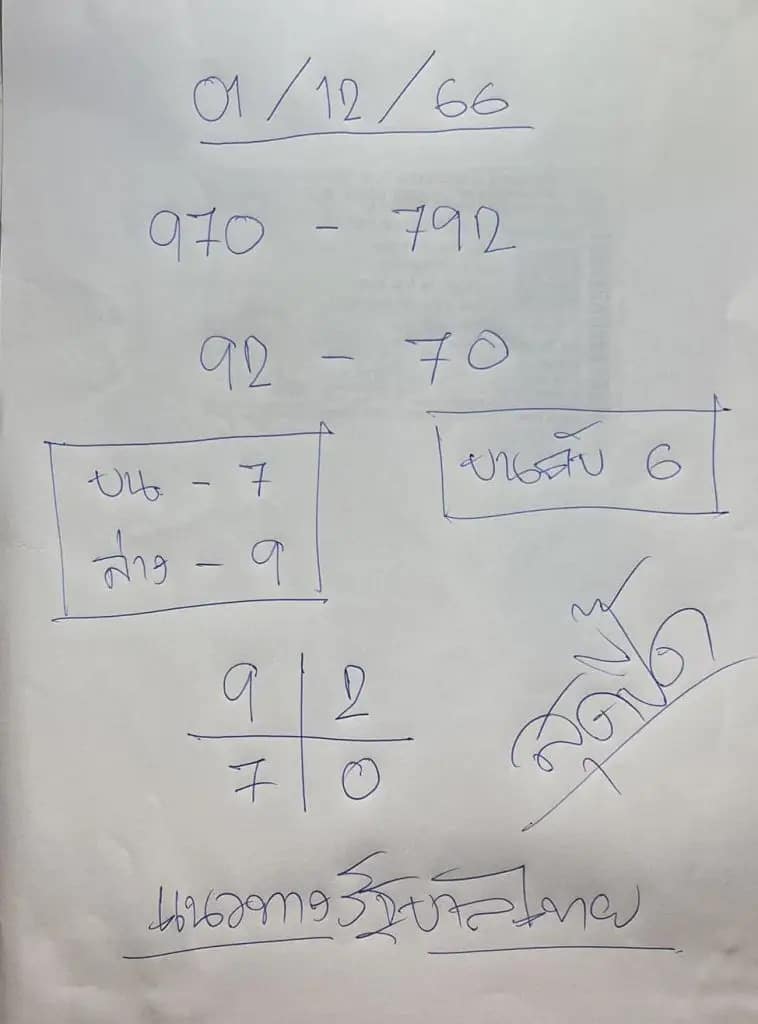 01/12/66
970 - 792
92 - 70
บน - 7
ล่าง - 9
บนดับ 6
9 2
7 0
สุดปั๊ด
แนวทางรัฐบาลไทย